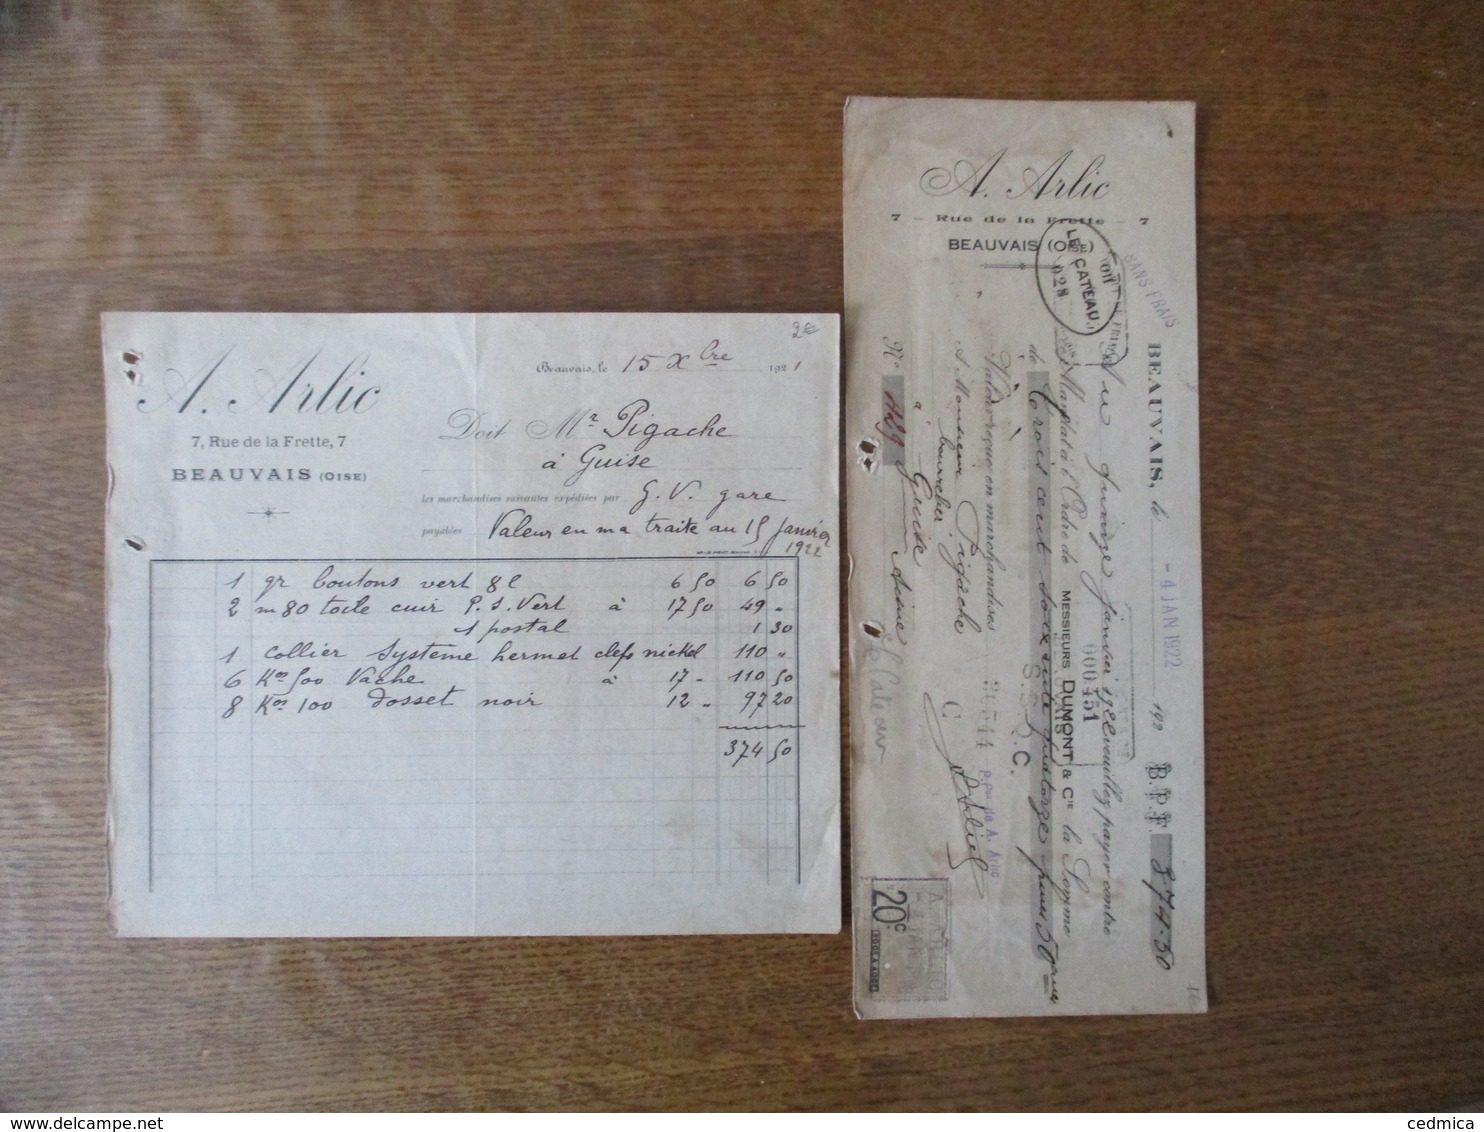 2€
A. Arlic
7, Rue de la Frette, 7
BEAUVAIS (OISE)
Beauvais, le 15 Xbre 1921
Doit Mr Pigache
à Guise
les marchandises suivantes expédiées par G. V. gare
payables Valeur en ma traite au 15 Janvier
1922
1 gr boutons vert 8 l 6 50 6 50
2 m 80 toile cuir P. S. Vert à 17 50 49 "
1 postal 1 30
1 Collier Systeme hermet clefs nickel 110 "
6 Kos 500 Vache à 17 " 110 50
8 Kos 100 dosset noir 12 " 97 20
374 50
A. Arlic
7 - Rue de la Frette - 7
BEAUVAIS (OISE)
LE CATEAU
028
SANS FRAIS
BEAUVAIS, le - 4 JAN 1922 192 B.P.F. 374.50
Au quinze janvier 1922 veuillez payer contre
Mandat à l'Ordre de MESSIEURS DUMONT & Cie la Somme
000451
de Trois cent soixante quatorze francs 50
Valeur reçue en marchandises
30544
P. pon de A. Arlic
A Monsieur Pigache
bourrelier
à Guise
Aisne
No
le Cateau
A. Arlic
20c
1€
cedmica